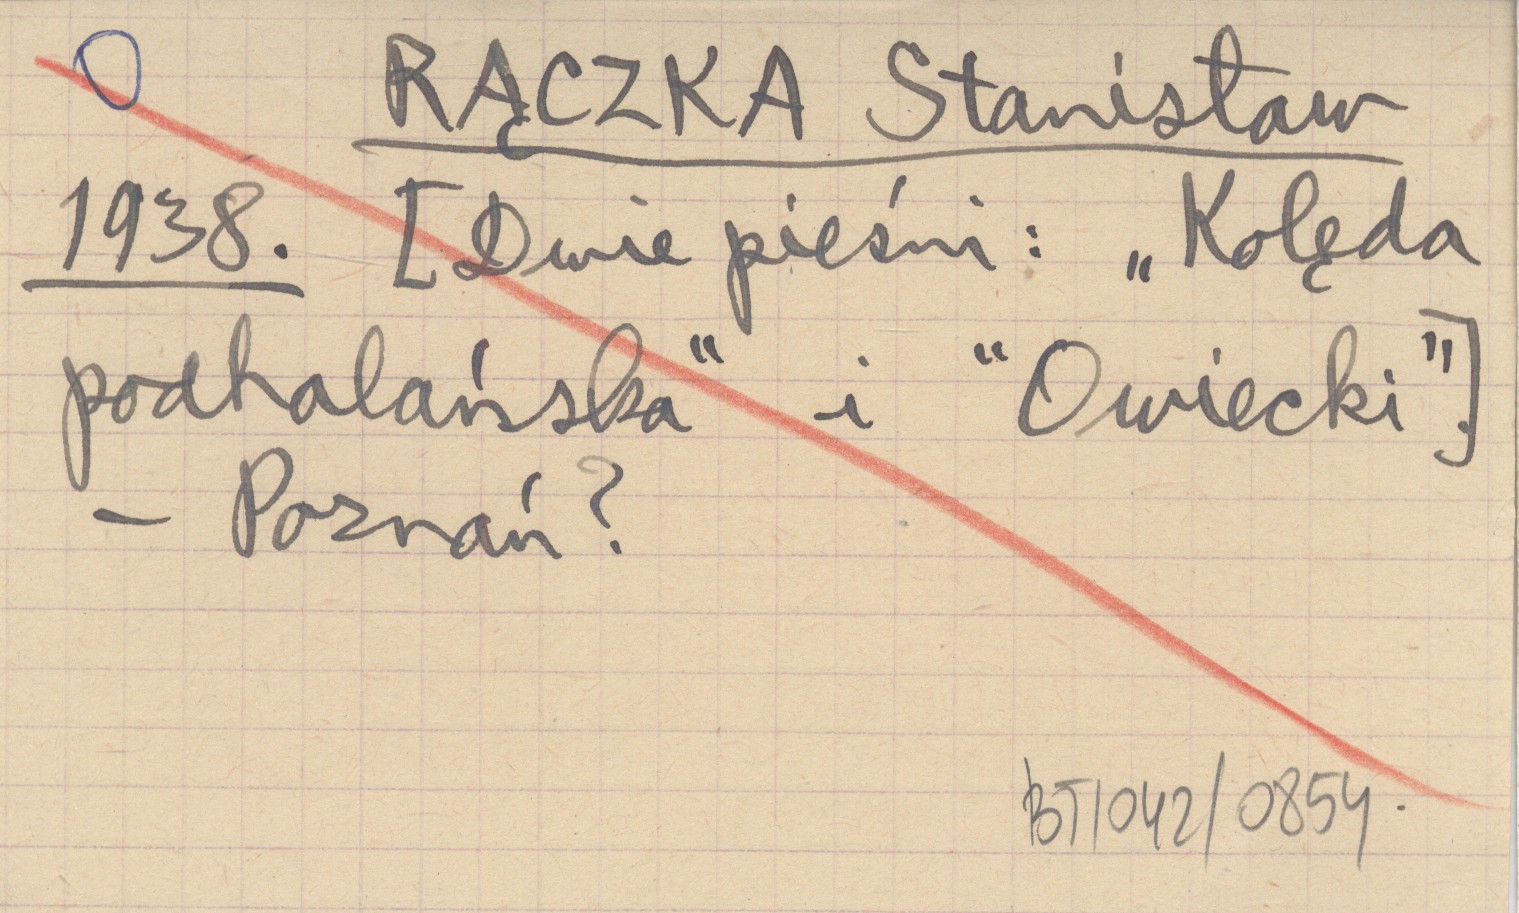 RĄCZKA Stanisław
1938. [Dwie pieśni: „Kolęda
podhalańska“ i “Owiecki”].
– Poznań?
BT/042/0854.